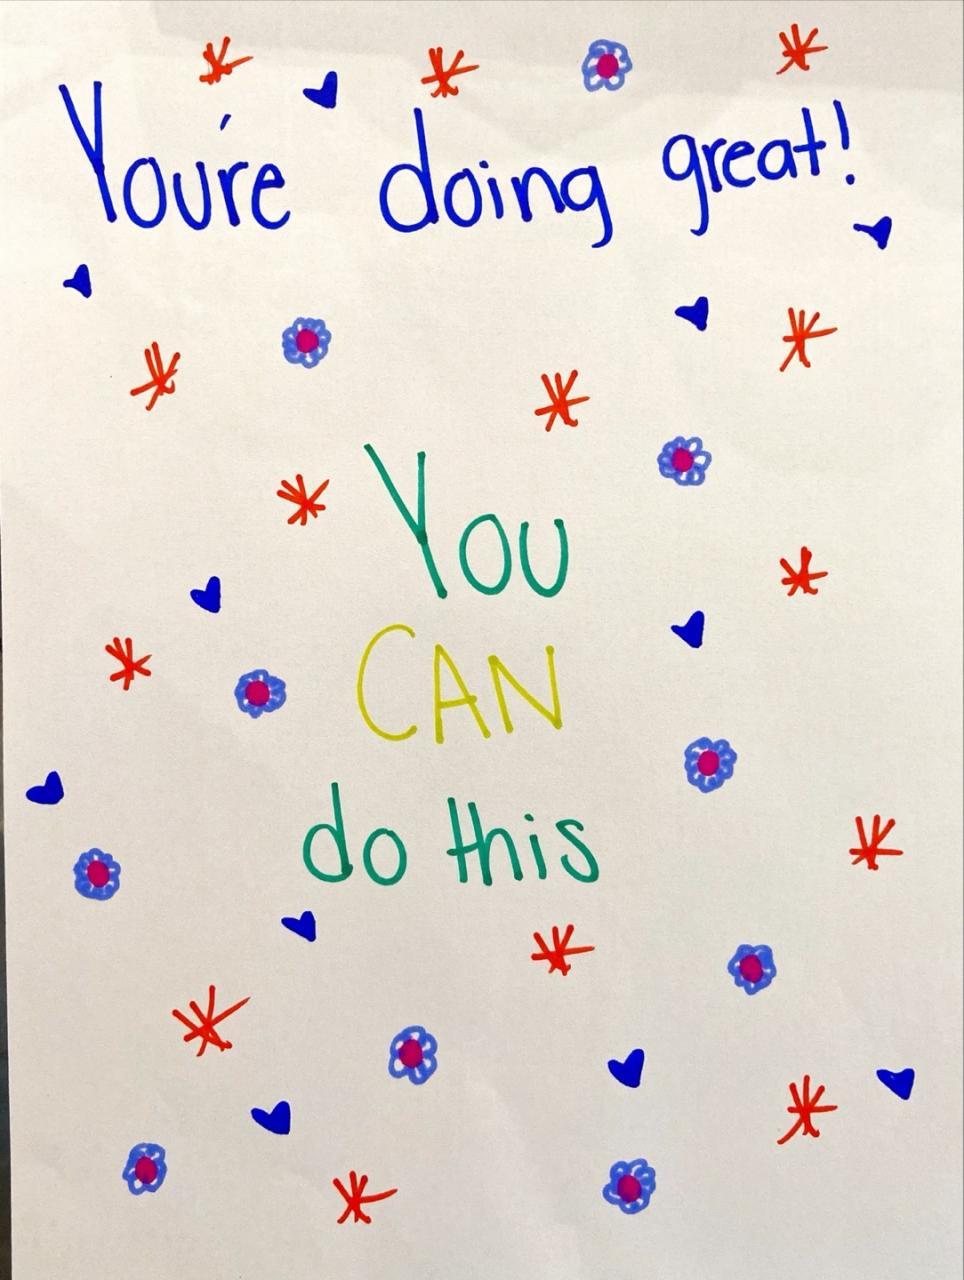 You're doing great!
You
CAN
do this